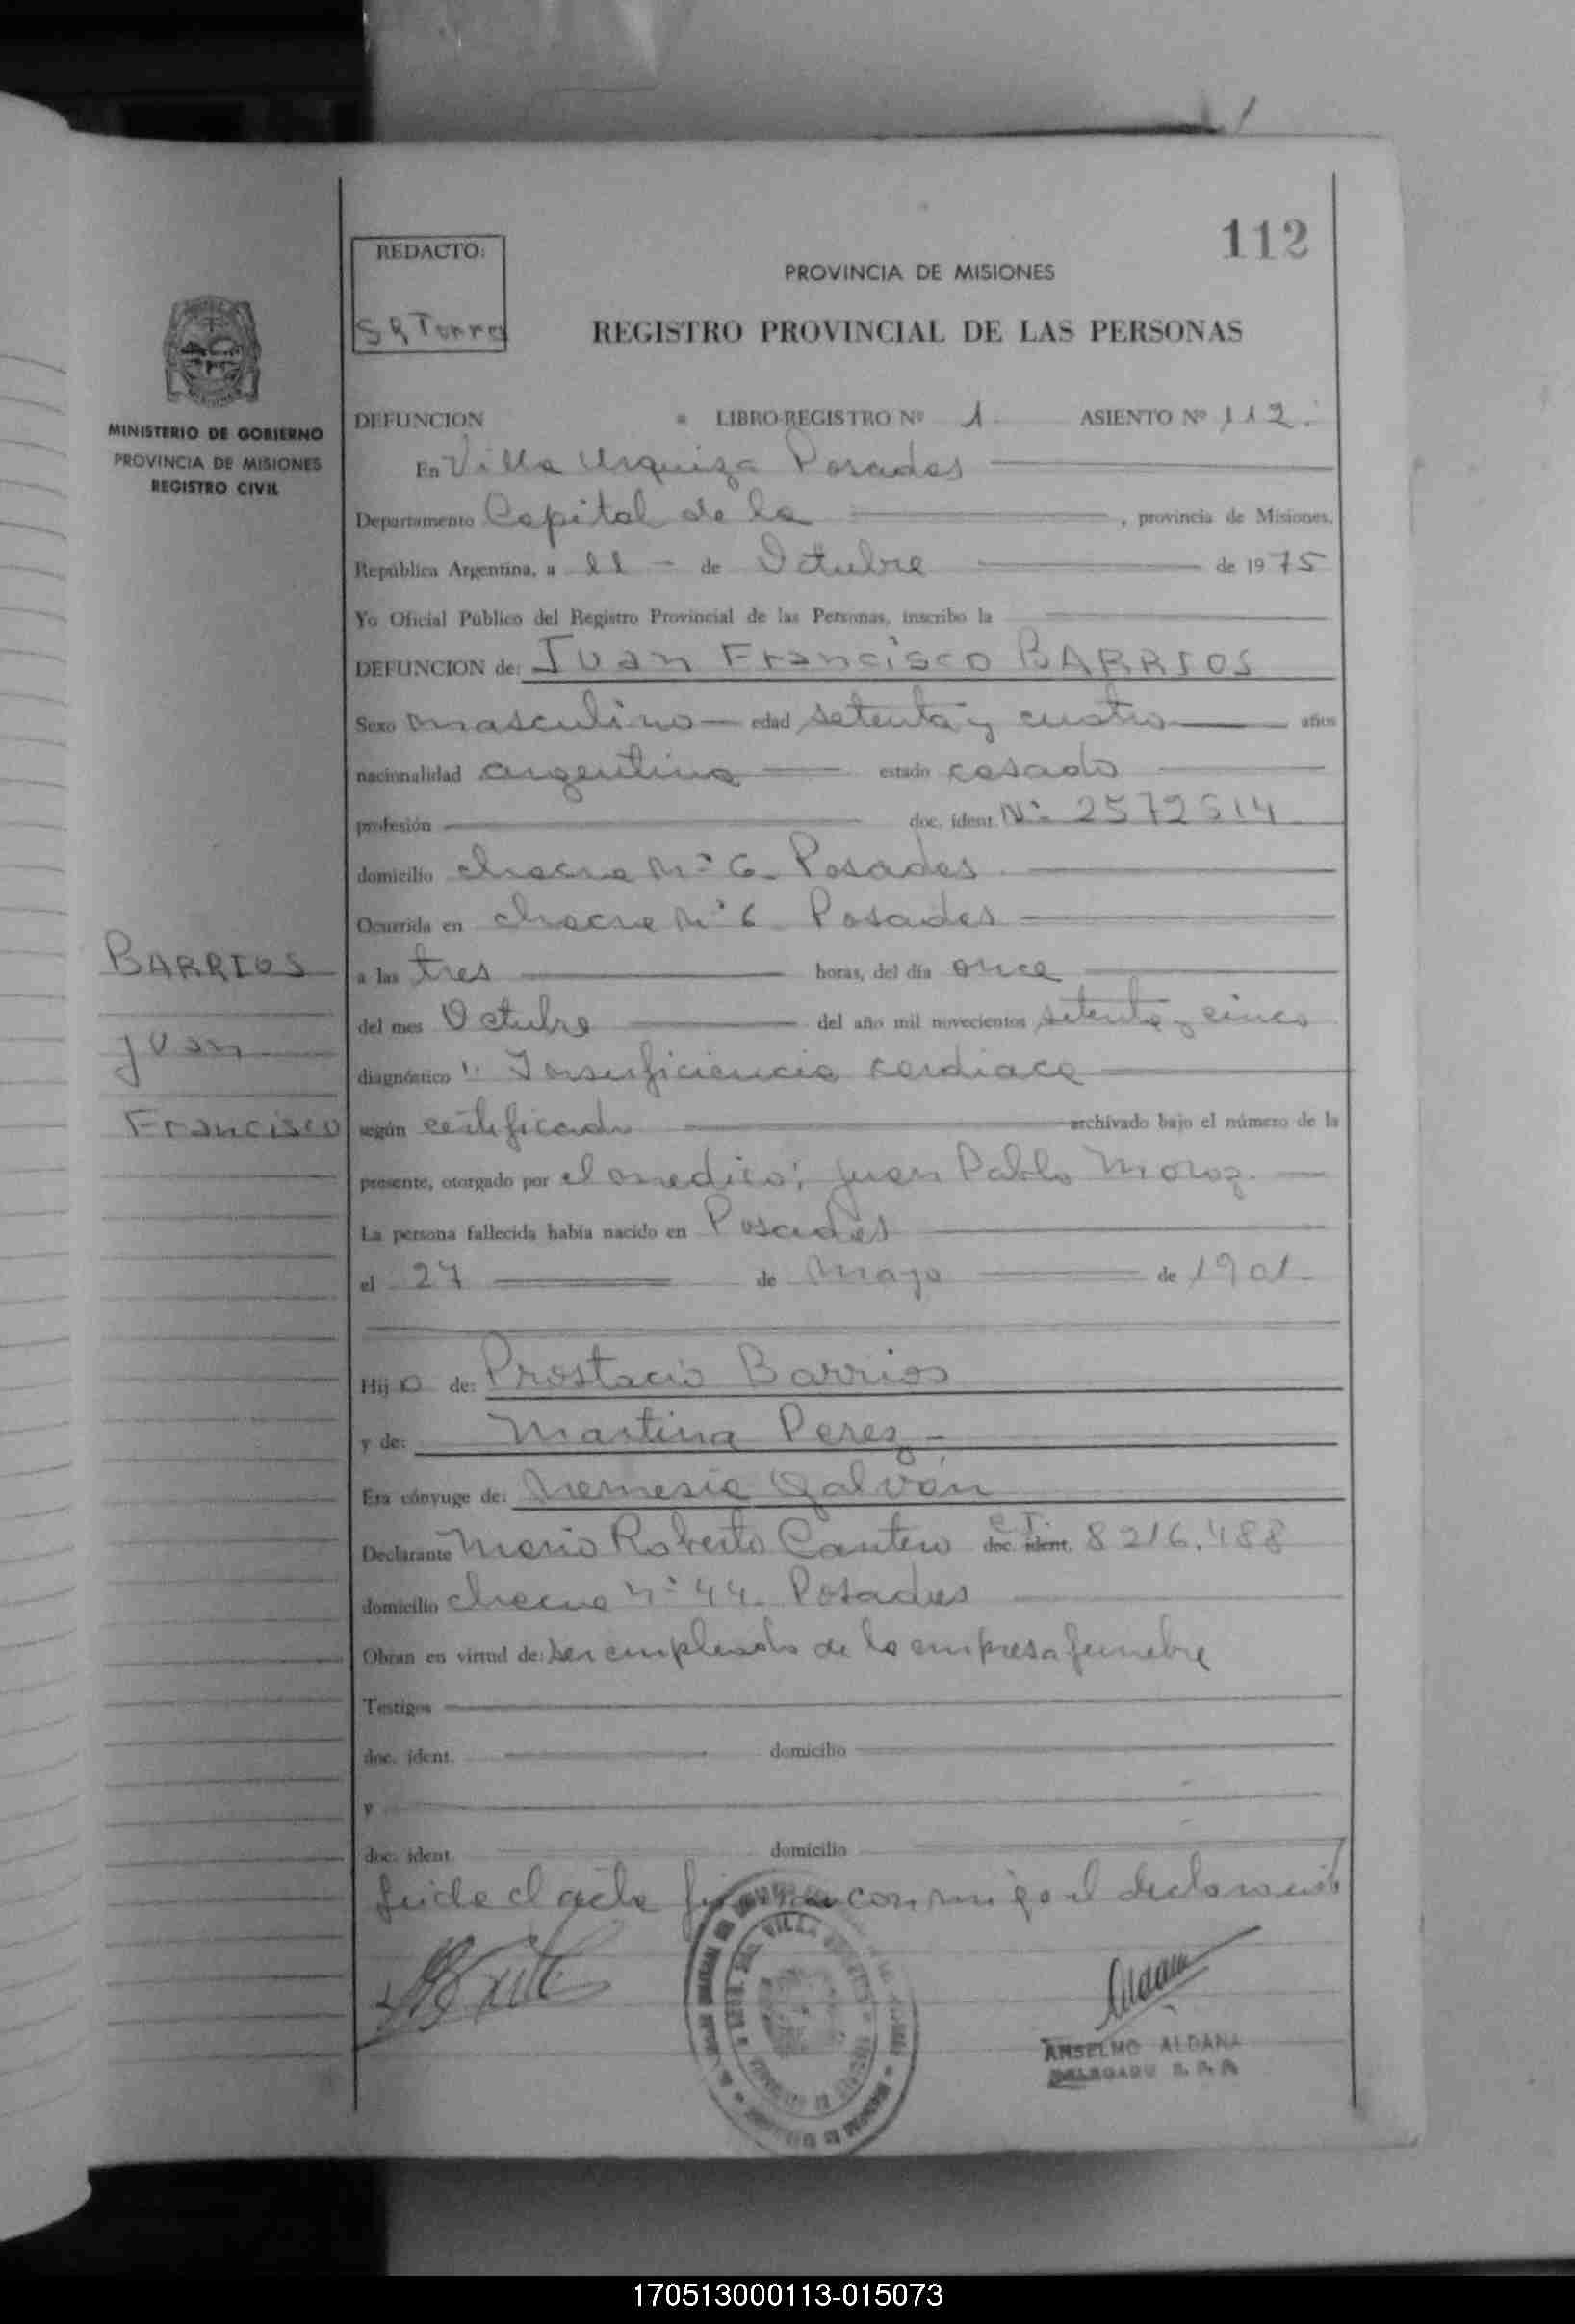 112
REDACTO:
PROVINCIA DE MISIONES
REGISTRO PROVINCIAL DE LAS PERSONAS
MINISTERIO DE GOBIERNO
PROVINCIA DE MISIONES
REGISTRO CIVIL
DEFUNCION LIBRO-REGISTRO Nº 1 ASIENTO Nº 112.
En Villa Urquiza Posadas
Departamento Capital de la , provincia de Misiones.
República Argentina, a 11 - de Octubre de 1975
Yo Oficial Público del Registro Provincial de las Personas, inscribo la
DEFUNCION de: Juan Francisco BARRIOS
Sexo masculino edad setenta y cuatro años
nacionalidad argentina estado casado
profesión doc. ident. Nº 2572514
domicilio chacra Nº 6 Posadas
Ocurrida en chacra Nº 6 Posadas
a las tres horas, del día once
del mes Octubre del año mil novecientos setenta y cinco
diagnóstico Insuficiencia cardiaca
según certificado archivado bajo el número de la
presente, otorgado por el medico: Juan Pablo Moroz.
La persona fallecida había nacido en Posadas
el 27 de Mayo de 1901
Hijo de: Prostacio Barrios
y de: Martina Perez
Era cónyuge de: Nemesia Galván
Declarante Mario Roberto Cantero doc. ident. 8216.488
domicilio chacra Nº 44. Posadas
Obran en virtud de: ser empleado de la empresa funebre
Testigos
doc. ident. domicilio
y
doc. ident. domicilio
Leida el acta conmigo el declarante
BARRIOS
Juan
Francisco
VILLA
ANSELMO ALDANA
DELEGADO R. P. P.
170513000113-015073